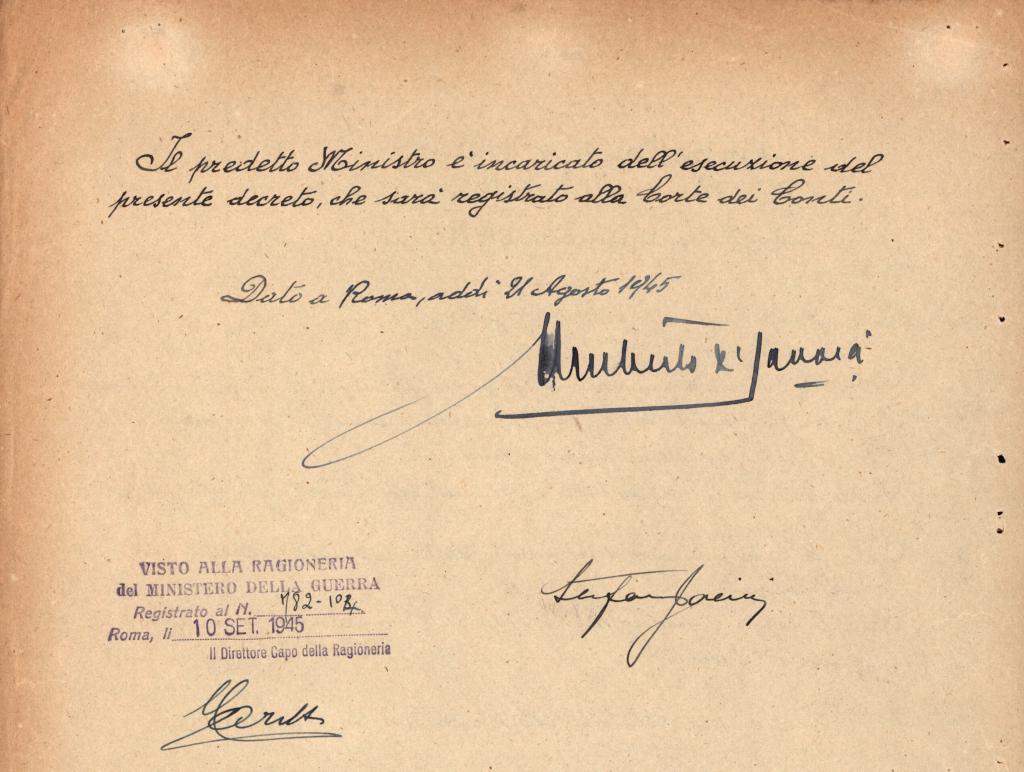 Il predetto Ministro è incaricato dell'esecuzione del
presente decreto, che sarà registrato alla Corte dei Conti.
Dato a Roma, addì 21 Agosto 1945
Umberto di Savoia
VISTO ALLA RAGIONERIA
del MINISTERO DELLA GUERRA
Registrato al N. 782-
Roma, li 10 SET. 1945
Il Direttore Capo della Ragioneria